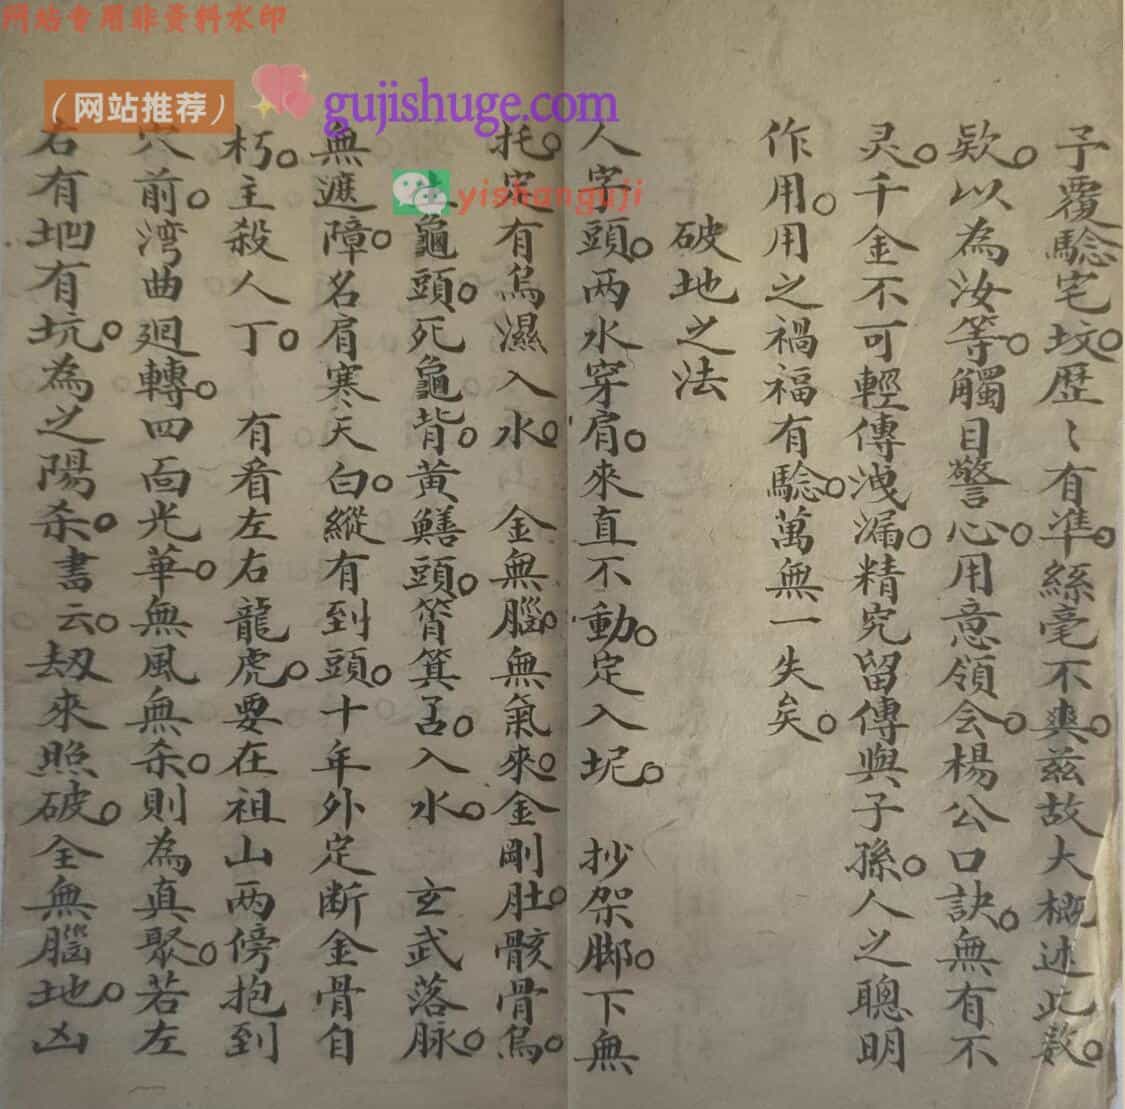 网站专用非资料水印
（网站推荐）
gujishuge.com
yishanguji
予覆騐宅坟。歷〻有凖。絲毫不爽。兹故大概述此数。
欵。以為汝等。觸目警心。用意領会。楊公口訣。無有不
灵。千金不可輕傳洩漏。精究留傳與子孫。人之聰明
作用。用之禍福有騐。萬無一失矣。
破地之法
人字頭。两水穿肩。來直不動。定入坭。 抄架脚。下無
托。定有烏濕入水。 金無腦。無氣來。金剛肚。骸骨烏。
龜頭。死龜背。黄鱔頭。筲箕舌。入水。 玄武落脉。
無遮障。名肩寒天白。縱有到頭。十年外定断金骨自
朽。主殺人丁。 有看左右龍虎。要在祖山两傍抱到
穴前。湾曲廻轉。四面光華。無風無杀。則為真聚。若左
右有地有坑。為之陽杀。書云。刼來照破。全無腦地。凶